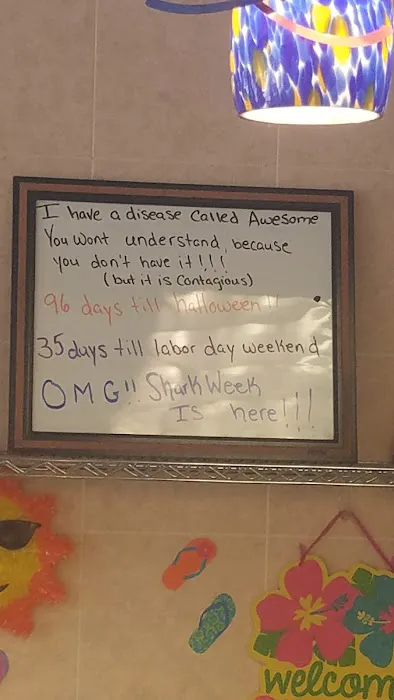 I have a disease Called Awesome
You Wont understand, because
you don't have it!!!
(but it is Contagious)
96 days till halloween!!
35 days till labor day weekend
OMG!! Shark Week
Is here!!!
welcom